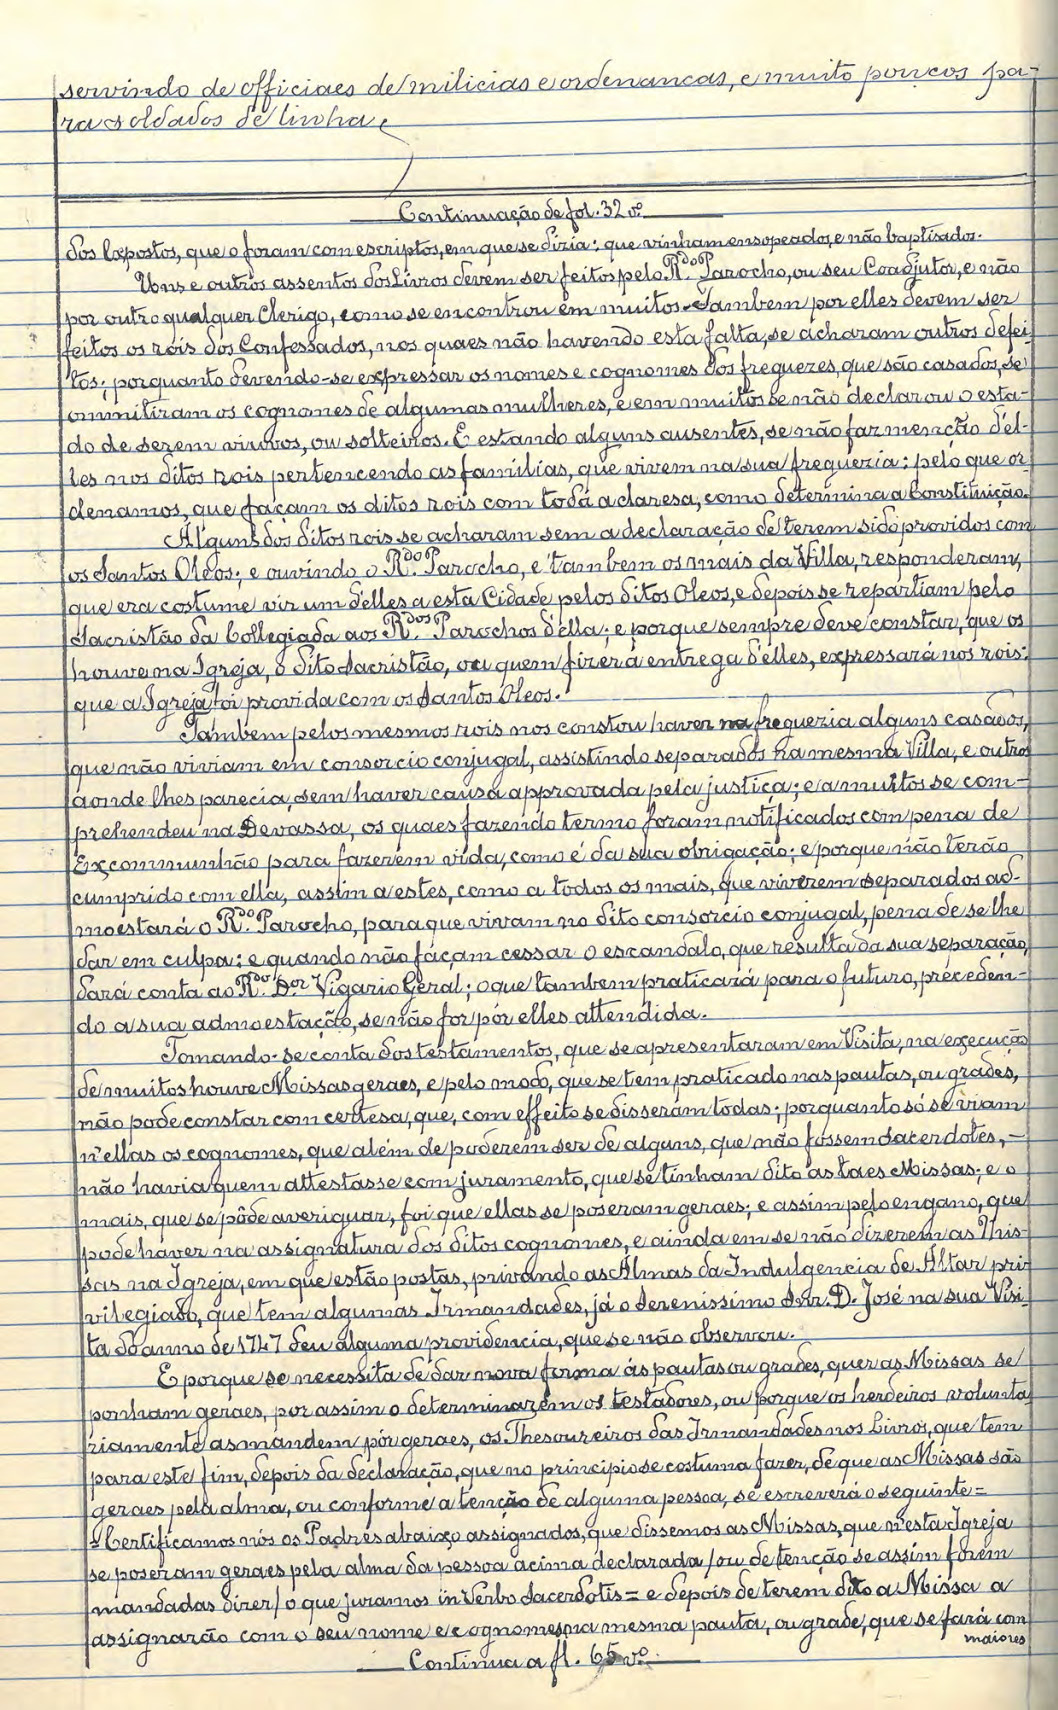 servindo de officiaes de milicias e ordenancas, e muito poucos pa-
ra soldados de linha,
Continuação de fol. 32 vº
dos Expostos, que o foram com escriptos, em que se dizia: que vinham ensopeados, e não baptisados.
Uns e outros assentos dos Livros devem ser feitos pelo R.do Parocho, ou seu Coadjutor, e não
por outro qualquer Clerigo, como se encontrou em muitos. Tambem por elles devem ser
feitos os róis dos Confessados, nos quaes não havendo esta falta, se acharam outros defei-
tos; porquanto devendo-se expressar os nomes e cognomes dos freguezes, que são casados, se
ommitiram os cognomes de algumas mulheres, e em muitos se não declarou o esta-
do de serem viuvos, ou solteiros. E estando alguns ausentes, se não faz menção d'el-
les nos ditos rois pertencendo as familias, que vivem na sua freguezia; pelo que or-
denamos, que façam os ditos rois com toda a claresa, como determina a Constituição.
Alguns dos ditos rois se acharam sem a declaração de terem sido providos com
os Santos Oleos; e ouvindo o R.do Parocho, e tambem os mais da Villa, responderam,
que era costume vir um d'elles a esta Cidade pelos ditos Oleos, e depois se repartiam pelo
Sacristão da Collegiada aos R.dos Parochos d'ella; e porque sempre deve constar, que os
houve na Igreja, o dito Sacristão, ou quem fizer a entrega d'elles, expressará nos rois:
que a Igreja foi provida com os Santos Oleos.
Tambem pelos mesmos rois nos constou haver na freguezia alguns casados,
que não viviam em consorcio conjugal, assistindo separados na mesma Villa, e outros
aonde lhes parecia, sem haver causa approvada pela justiça; e a muitos se com-
prehendeu na Devassa, os quaes fazendo termo foram notificados com pena de
Excommunhão para fazerem vida, como é da sua obrigação; e porque não terão
cumprido com ella, assim a estes, como a todos os mais, que viverem separados ad-
moestará o R.do Parocho, para que vivam no dito consorcio conjugal, pena de se lhe
dar em culpa: e quando não façam cessar o escandalo, que resulta da sua separação,
dará conta ao R.do D.or Vigario Geral; o que tambem praticará para o futuro, preceden-
do a sua admoestação, se não for por elles attendida.
Tomando-se conta dos testamentos, que se apresentaram em Visita, na execução
de muitos houve Missas geraes, e pelo modo, que se tem praticado nas pautas, ou grades,
não pode constar com certesa, que, com effeito se disseram todas; porquanto só se viam
n'ellas os cognomes, que além de poderem ser de alguns, que não fossem Sacerdotes, —
não havia quem attestasse com juramento, que se tinham dito as taes Missas; e o
mais, que se pôde averiguar, foi que ellas se poseram geraes; e assim pelo engano, que
pode haver na assignatura dos ditos cognomes, e ainda em se não dizerem as Mis-
sas na Igreja, em que estão postas, privando as Almas da Indulgencia de Altar pri-
vilegiado, que tem algumas Irmandades, já o Serenissimo Snr. D. José na sua Visi-
ta do anno de 1747 deu alguma providencia, que se não observou.
E porque se necessita de dar nova forma ás pautas ou grades, quer as Missas se
ponham geraes, por assim o determinarem os testadores, ou porque os herdeiros volunta-
riamente as mandem pôr geraes, os Thesoureiros das Irmandades nos Livros, que tem
para este fim, depois da declaração, que no principio se costuma fazer, de que as Missas são
geraes pela alma, ou conforme a tenção de alguma pessoa, se escreverá o seguinte =
Certificamos nós os Padres abaixo assignados, que dissemos as Missas, que n'esta Igreja
se poseram geraes pela alma da pessoa acima declarada / ou de tenção se assim forem
mandadas dizer / o que juramos in Verbo Sacerdotis = e depois de terem dito a Missa a
assignarão com o seu nome e cognomes na mesma pauta, ou grade, que se fará com
maiores
Continua a fl. 65 vº